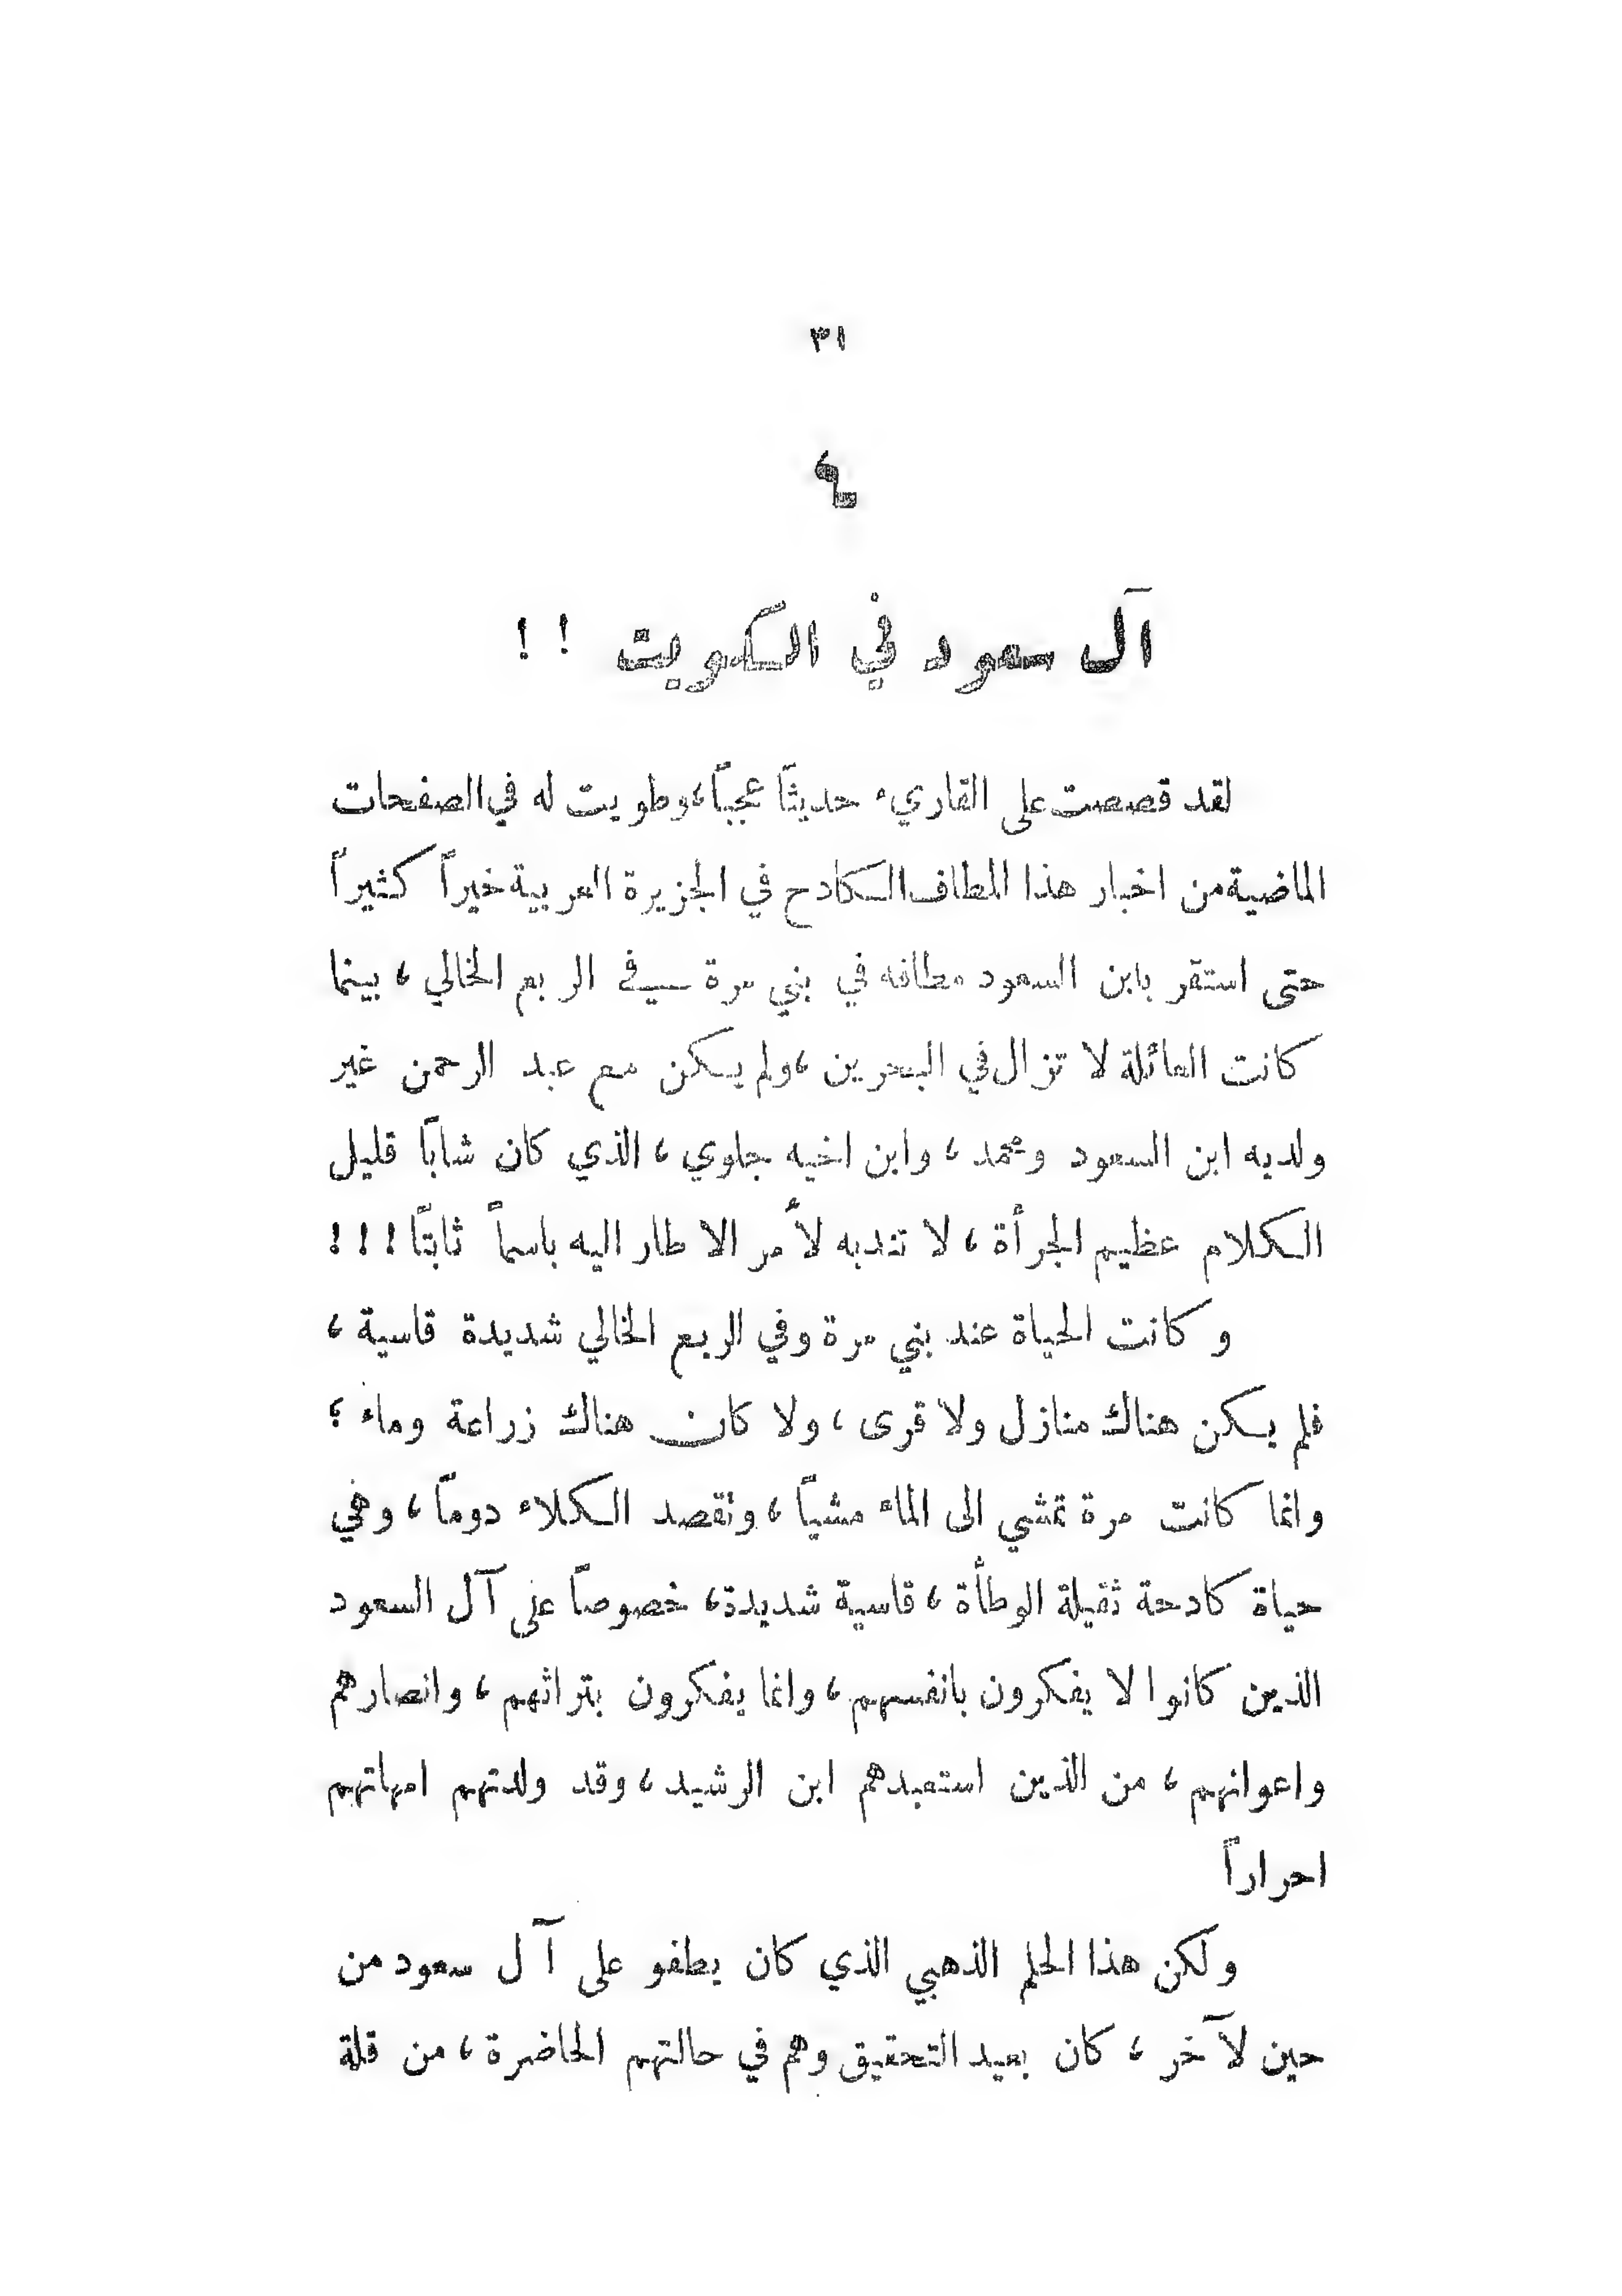 ٣١
آل سعود في الكويت ! !
لقد قصصت على القاريء حديثاً عجباً، وطويت له في الصفحات
الماضية من اخبار هذا المطاف الكادح في الجزيرة العربية خيراً كثيراً
حتى استقر بابن السعود مطافه في بني مرة في الربع الخالي ، بينما
كانت العائلة لا تزال في البحرين ، ولم يكن مع عبد الرحمن غير
ولديه ابن السعود ومحمد ، وابن اخيه جلوي ، الذي كان شاباً قليل
الكلام عظيم الجرأة ، لا تندبه لأمر الا طار اليه باسماً ثابتاً ! ! !
وكانت الحياة عند بني مرة وفي الربع الخالي شديدة قاسية ،
فلم يكن هناك منازل ولا قرى ، ولا كان هناك زراعة وماء ؛
وانما كانت مرة تمشي الى الماء مشياً ، وتقصد الكلاء دوماً ، وهي
حياة كادحة ثقيلة الوطأة ، قاسية شديدة ، خصوصاً على آل السعود
الذين كانوا لا يفكرون بانفسهم ، وانما يفكرون بتراثهم ، وانصارهم
واعوانهم ، من الذين استعبدهم ابن الرشيد ، وقد ولدتهم امهاتهم
احراراً
ولكن هذا الحلم الذهبي الذي كان يطفو على آل سعود من
حين لآخر ، كان بعيد التحقيق وهم في حالتهم الحاضرة ، من قلة